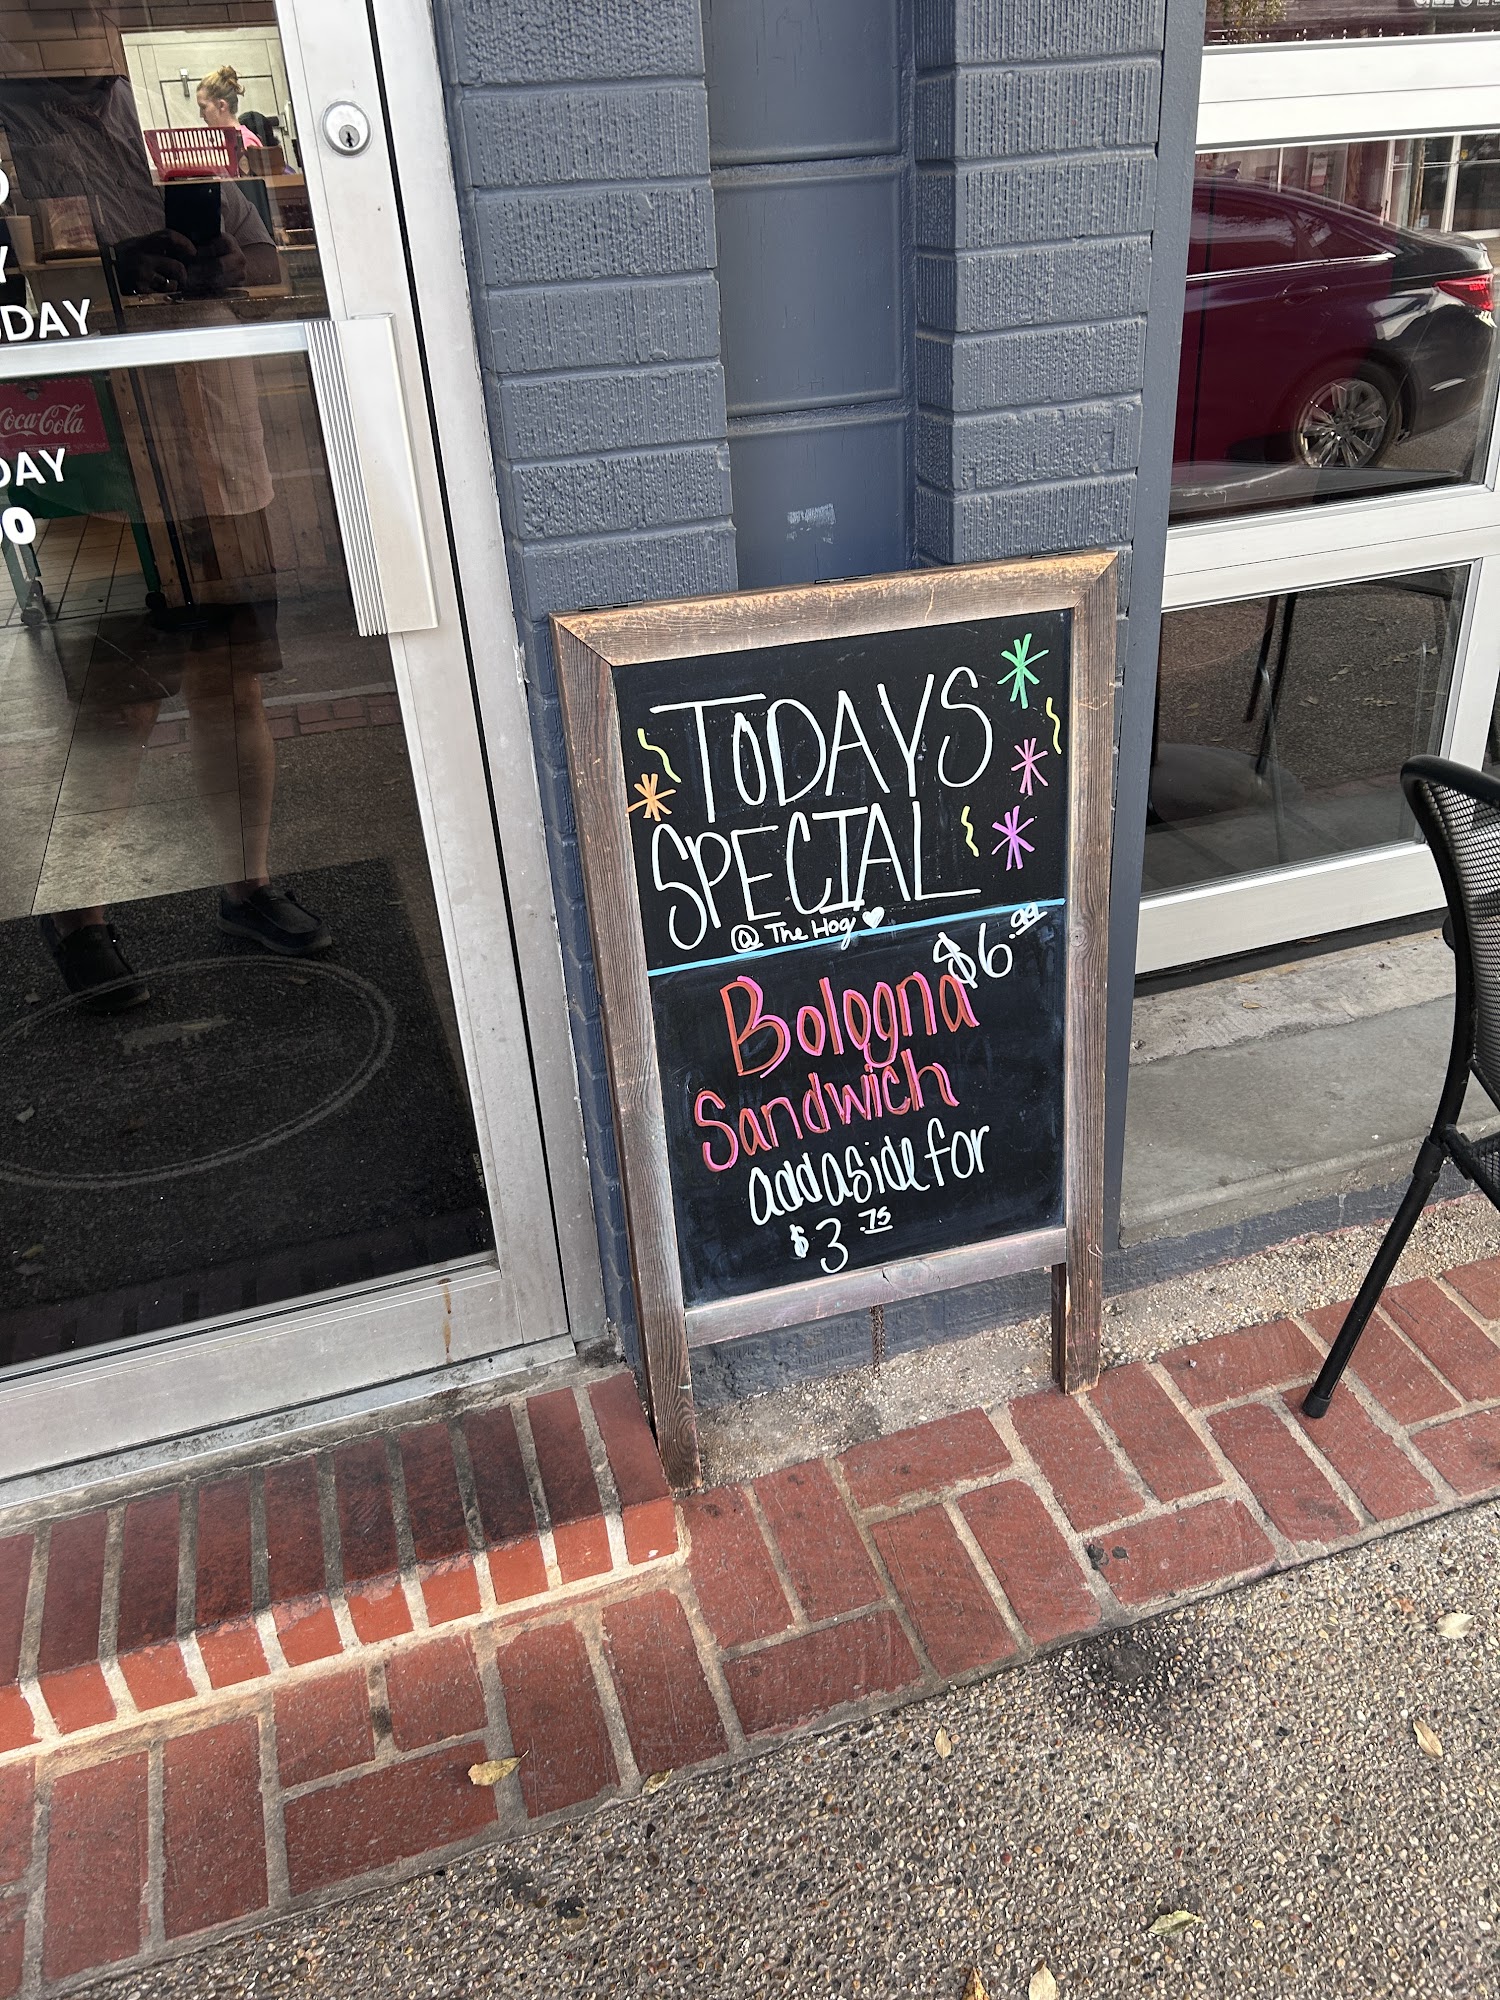 DAY
Coca-Cola
DAY
00
TODAYS
SPECIAL
@ The Hog
$6.99
Bologna
Sandwich
add a side for
$3.75